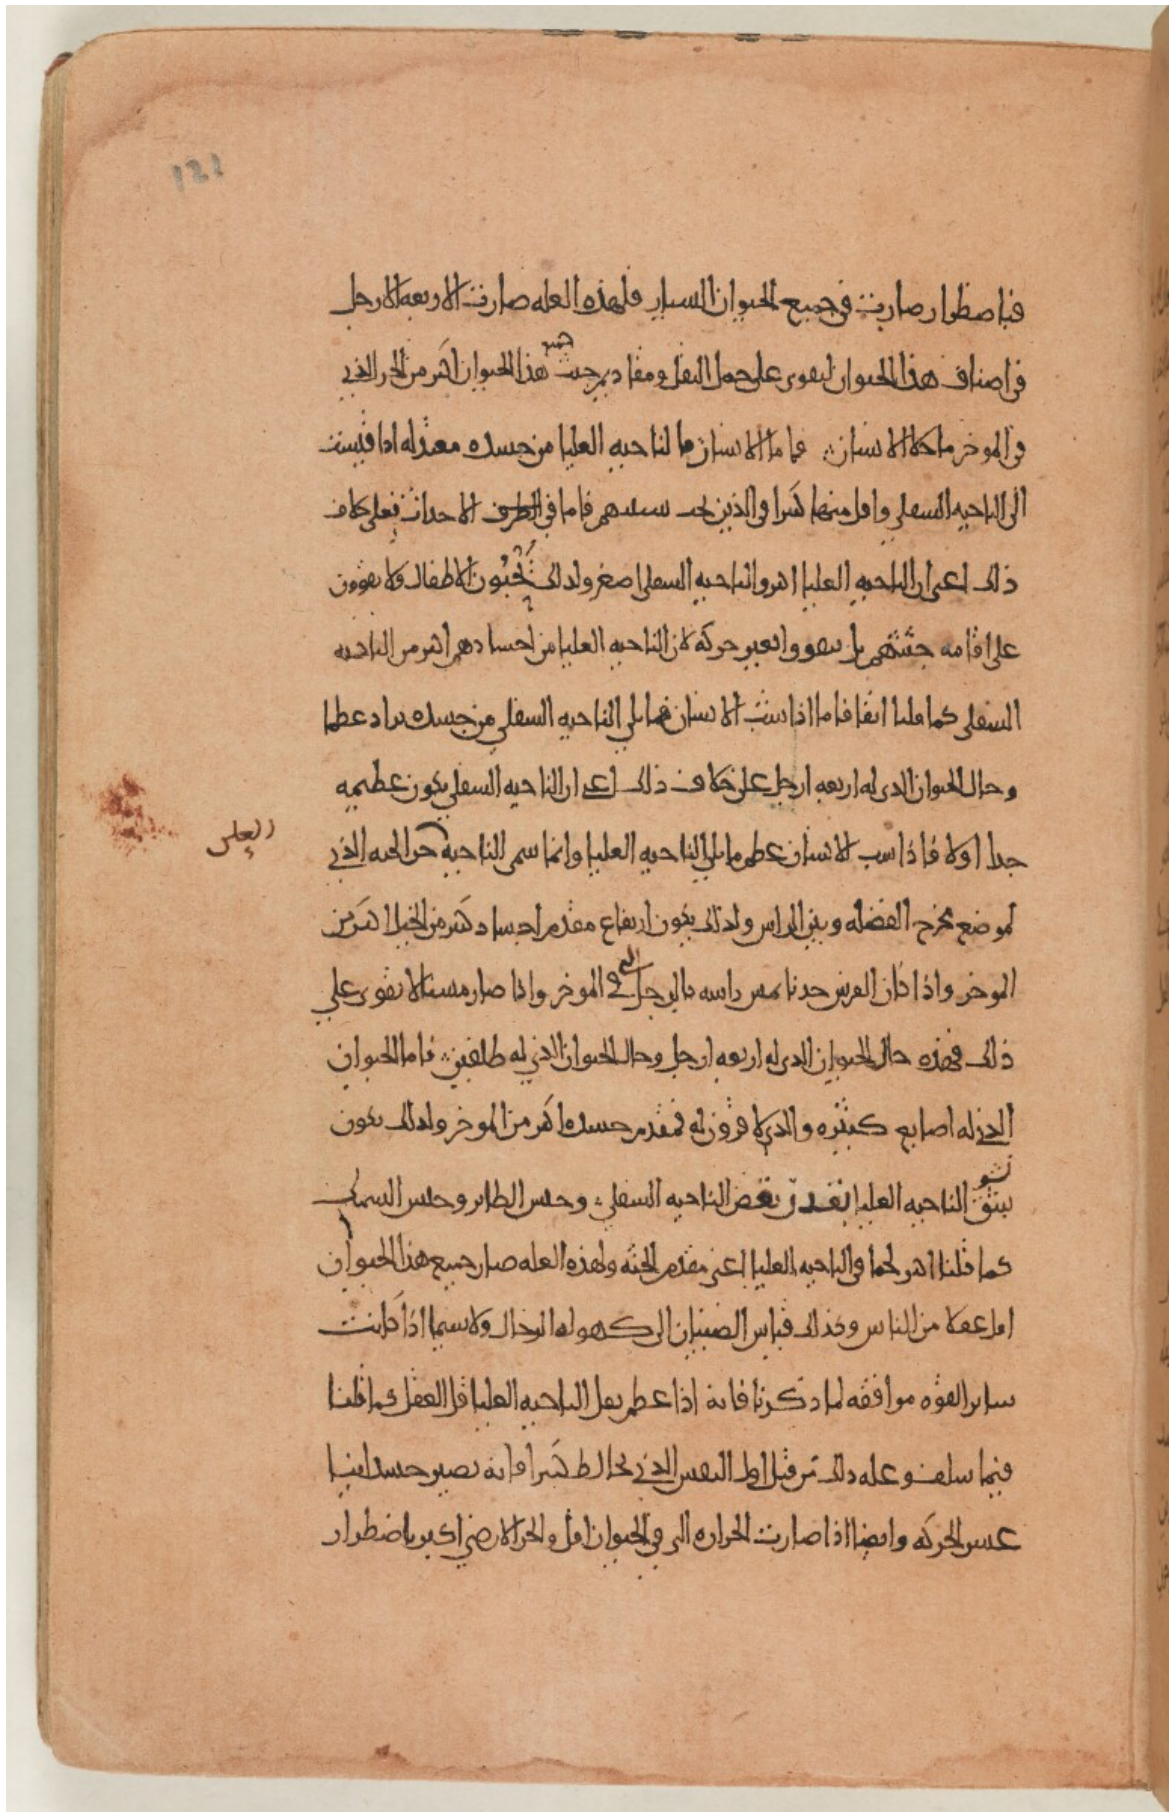 121
فباصطرار صارت في جميع الحيوان السيار فلهذه العله صارت الاربعه الارجل
في اصناف هذا الحيوان ليقوى على حمل الثقل ومقاديم جثث هذا الحيوان اكبر من الجز الذي
في الموخر ما خلا الانسان فاما الانسان فالناحيه العليا من جسده معتدله اذا قيست
الى الناحيه السفلى واقل منها كثيرا في الذين سنهم فاما في الاحداث فعلى خلاف
ذلك اعني ان الناحيه العليا اكبر والناحيه السفلى اصغر ولذلك يحبون الاطفال ولا يقوون
على اقامه جثثهم بل يبقون بغير حركه لان الناحيه العليا من اجسادهم اكبر من الناحيه
السفلى كما قلنا انفا فاما اذا شب الانسان فما يلي الناحيه السفلى من جسده يزداد عظما
وحال الحيوان الذي له اربعه ارجل على خلاف ذلك اعني ان الناحيه السفلى يكون عظيمه
جدا اولا فاذا شب الانسان عظم ما يلي الناحيه العليا وانما سمى الناحيه جز الجثه الذي
العليا
لموضع مخرج الفضله وبين الراس ولذلك يكون ارتفاع مقدم اجساد كثير من الخيل اكثر من
الموخر واذا كان الفرس حدثا يمس راسه بالرجل التي في الموخر واذا صار مسنا لا يقوى على
ذلك فهذه حال الحيوان الذي له اربعه ارجل وحال الحيوان الذي له ظلفين فاما الحيوان
الذي له اصابع كثيره والذي لا قرون له فمقدم جسده اكبر من الموخر ولذلك يكون
نشو الناحيه العليا بقدر نقض الناحيه السفلى وجنس الطائر وجنس السمك
كما قلنا اكثر لحما في الناحيه العليا اعني مقدم الجثه ولهذه العله صار جميع هذا الحيوان
اقل عقلا من الناس وكذلك قياس الصبيان الى كهوله الرجال ولا سيما اذا كانت
ساير القوه موافقه لما ذكرنا فانه اذا عظم ثقل الناحيه العليا قل العقل كما قلنا
فيما سلف وعله ذلك من قبل اول النفس الذي يخالط كثيرا فانه يصير جسدانيا
عسر الحركه وايضا اذا صارت الحراره التي في الحيوان اقل والجز الارضي اكبر باضطرار